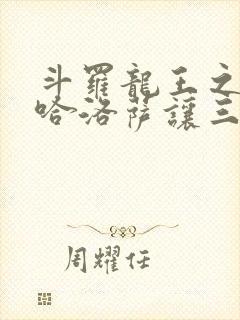 斗羅龍王之
哈洛薩讓三
周耀任